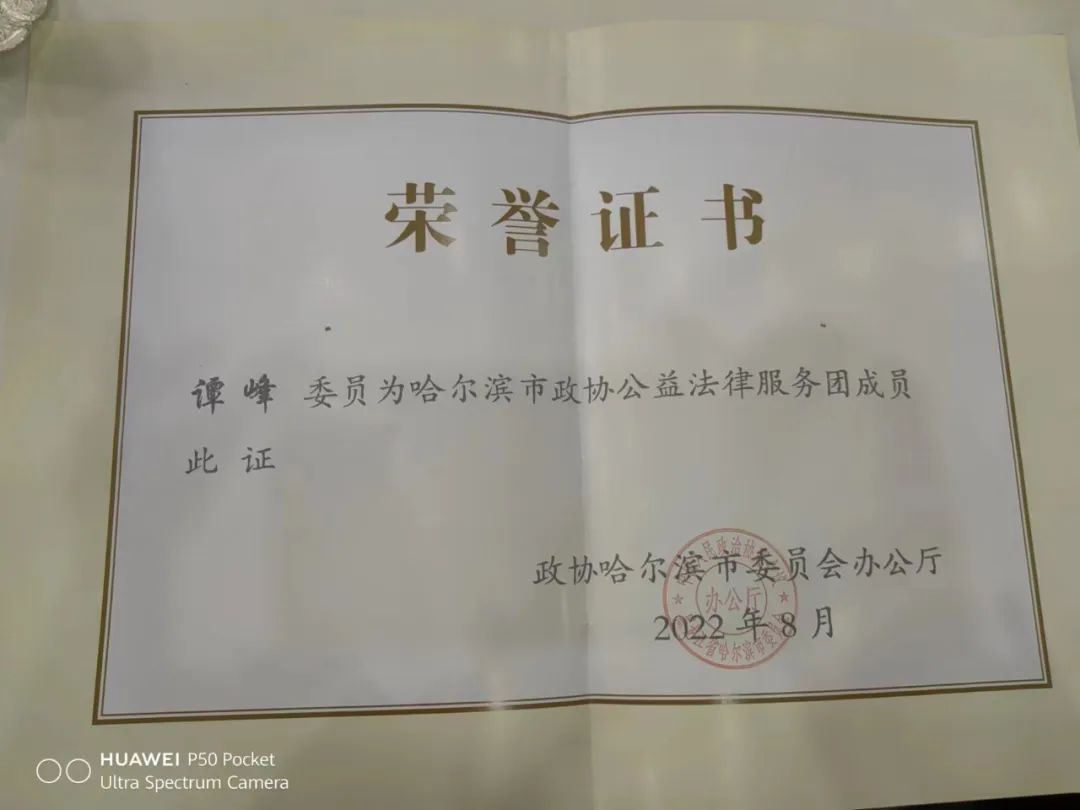 荣誉证书
谭峰 委员为哈尔滨市政协公益法律服务团成员
此 证
政协哈尔滨市委员会办公厅
2022 年 8 月
民政治协
办公厅
省哈尔滨市委员
HUAWEI P50 Pocket
Ultra Spectrum Camera